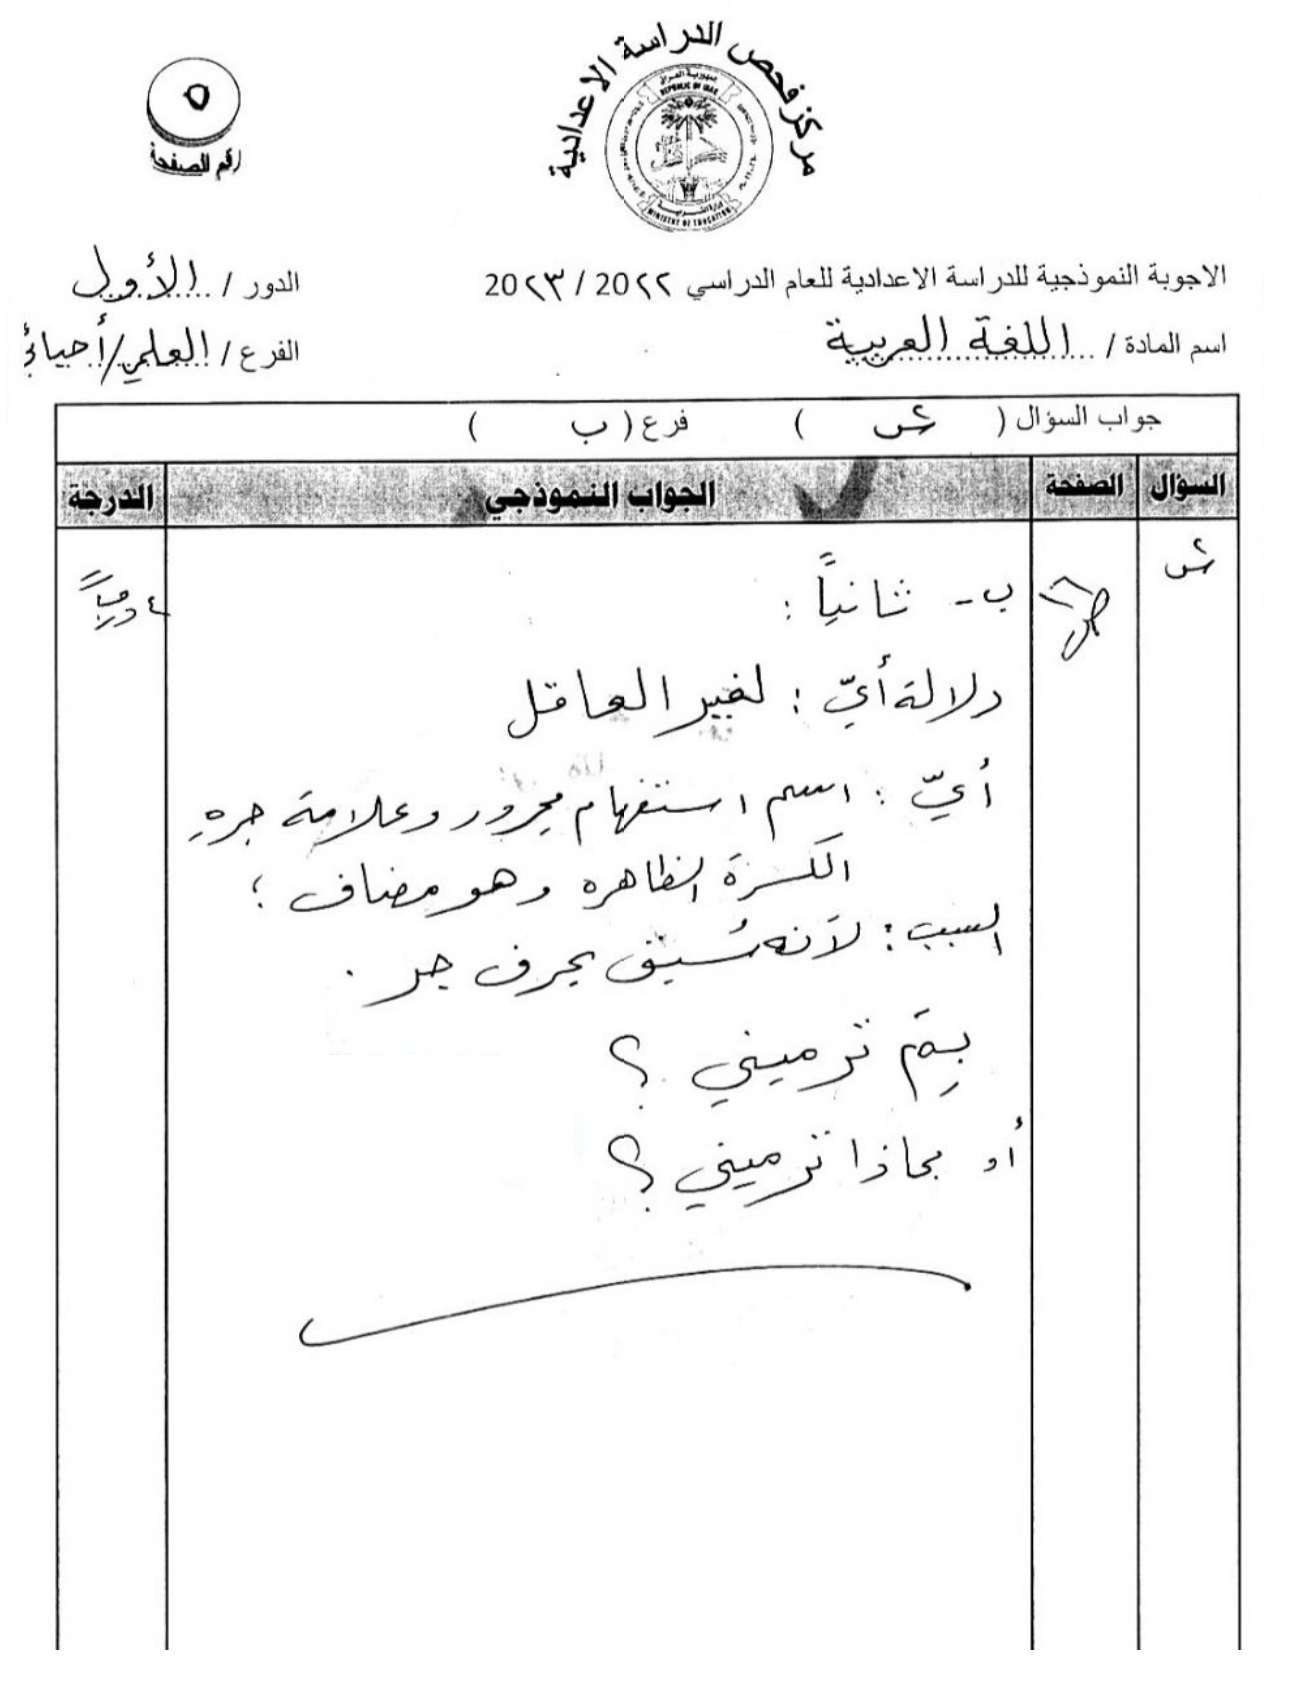 مركز فحص الدراسة الاعدادية
جمهورية العراق
REPUBLIC OF IRAQ
وزارة التربية
MINISTRY OF EDUCATION
٥
رقم الصفحة
الاجوبة النموذجية للدراسة الاعدادية للعام الدراسي ٢٠٢٢ / ٢٠٢٣
الدور / الأول
اسم المادة / اللغة العربية
الفرع / العلمي/أحيائي
جواب السؤال ( س٢ ) فرع ( ب )
السؤال الصفحة الجواب النموذجي الدرجة
س٢
ب - ثانياً :
دلالة أيّ : لغير العاقل
أيّ : اسم استفهام مجرور وعلامة جرهِ
الكسرة الظاهره وهو مضاف ؛
السبب : لأنه سُبق بحرف جر .
بِمَ ترميني ؟
أو بماذا ترميني ؟